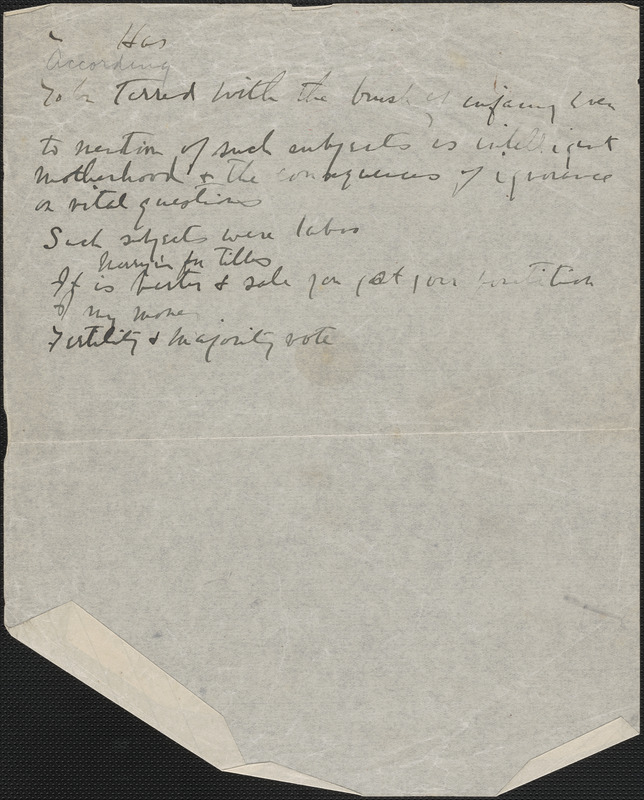 Has
According
To be Tarred with the brush of infamy even
to mention of such subjects as intelligent
motherhood & the consequences of ignorance
on vital questions
Such subjects were labor
Marrying for Titles
If is barter & sale you get your position
& my money.
Fertility & Majority vote